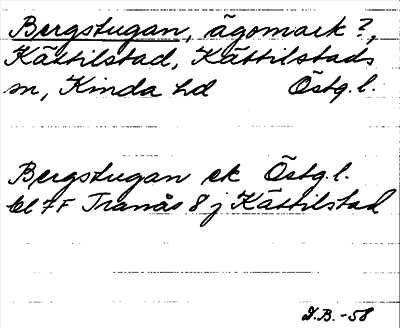 Bergstugan, ägomark?,
Kättilstad, Kättilstads
sn, Kinda hd Östg.l.
Bergstugan ek Östg.l.
bl 7F Tranås 8 j Kättilstad
I.B.-58